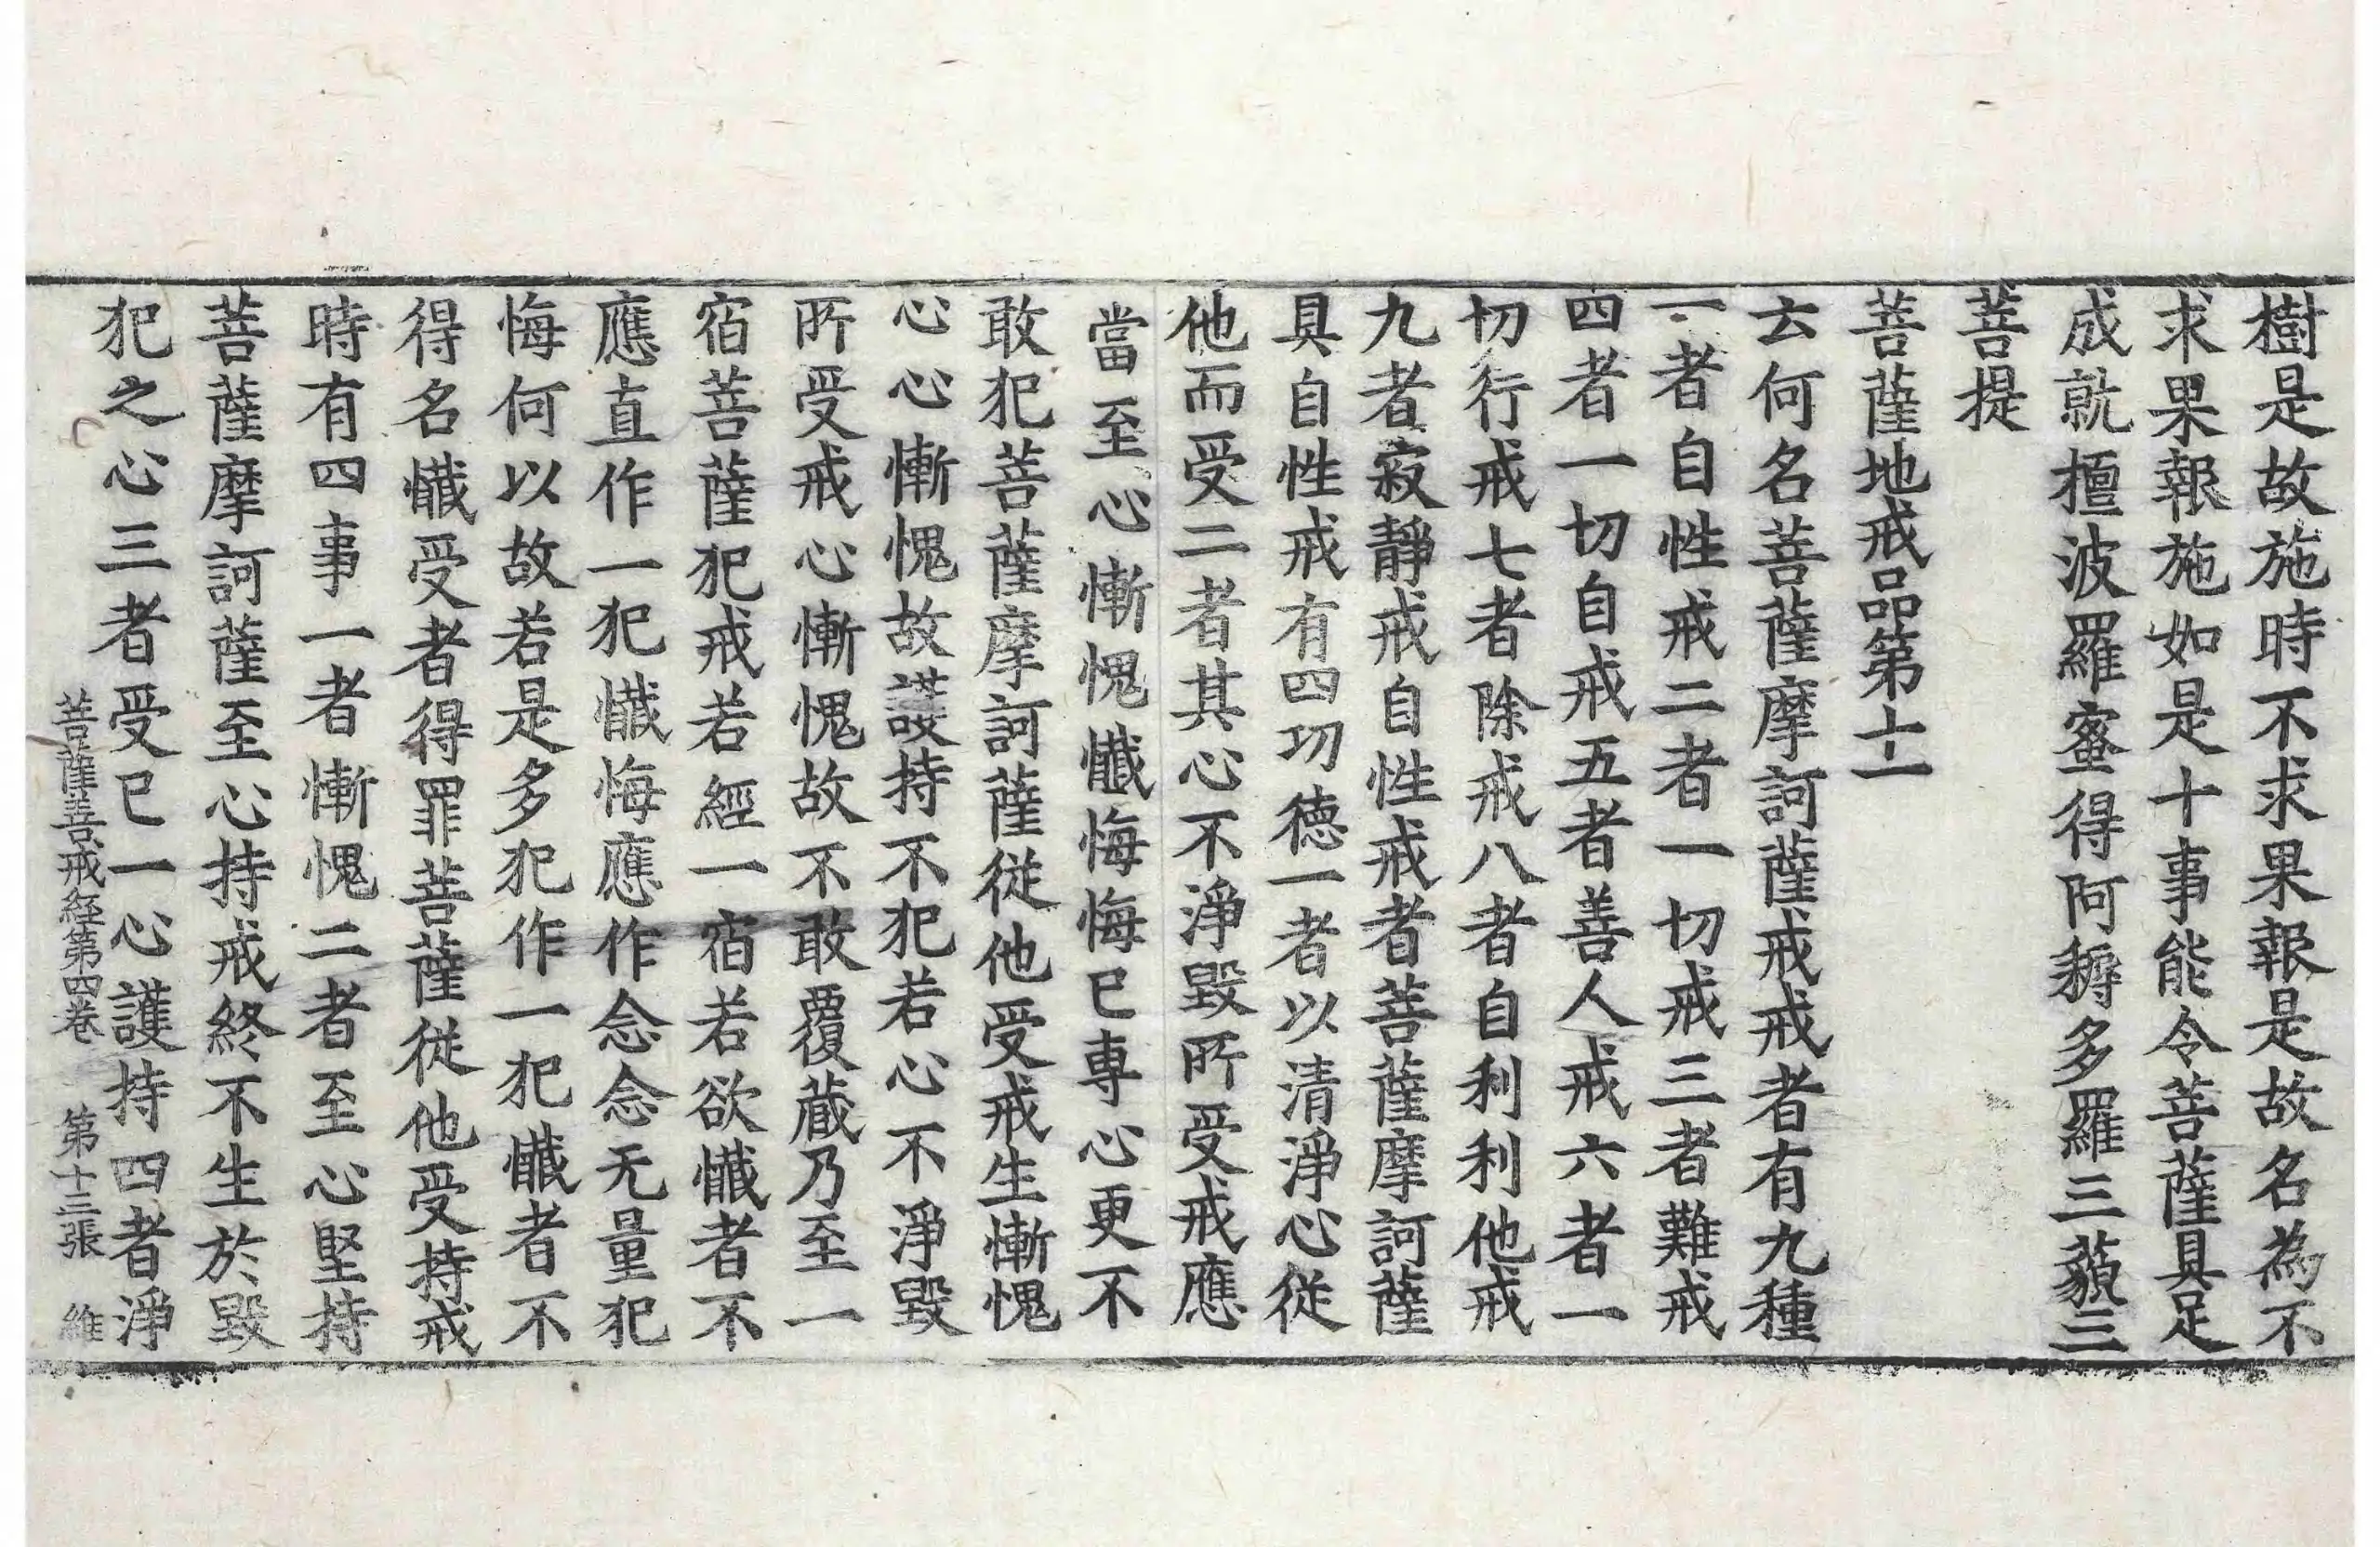 樹是故施時不求果報是故名為不
求果報施如是十事能令菩薩具足
成就檀波羅蜜得阿耨多羅三藐三
菩提
菩薩地戒品第十一
云何名菩薩摩訶薩戒戒者有九種
一者自性戒二者一切戒三者難戒
四者一切自戒五者善人戒六者一
切行戒七者除戒八者自利利他戒
九者寂靜戒自性戒者菩薩摩訶薩
具自性戒有四功德一者以清淨心從
他而受二者其心不淨毀所受戒應
當至心慚愧懺悔悔已專心更不
敢犯菩薩摩訶薩從他受戒生慚愧
心心慚愧故護持不犯若心不淨毀
所受戒心慚愧故不敢覆藏乃至一
宿菩薩犯戒若經一宿若欲懺者不
應直作一犯懺悔應作念念无量犯
悔何以故若是多犯作一犯懺者不
得名懺受者得罪菩薩從他受持戒
時有四事一者慚愧二者至心堅持
菩薩摩訶薩至心持戒終不生於毀
犯之心三者受已一心護持四者淨
菩薩善戒經第四卷 第十三張 維